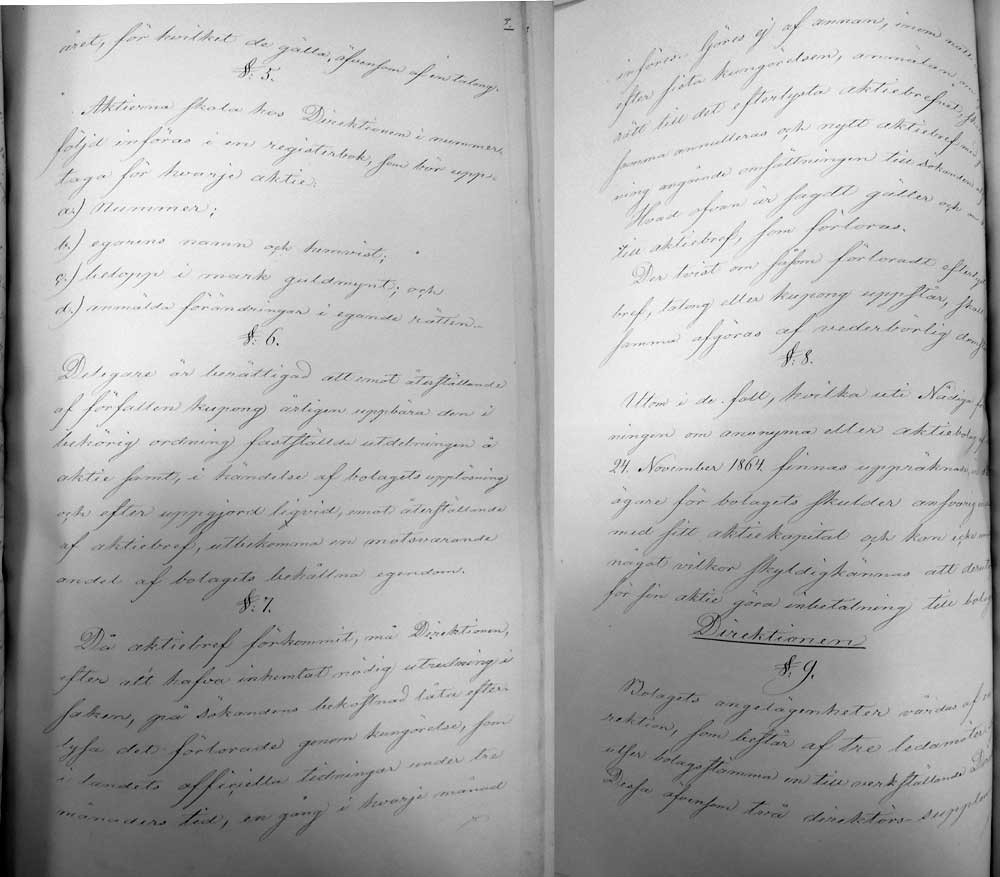 7.
året, för hvilket de gälla, äfvensom af en talong.
§. 5.
Aktierna skola hos Direktionen i nummer-
följd införas i en registerbok, som bör upp-
taga för hvarje aktie:
a.) nummer;
b.) egarens namn och hemvist;
c.) belopp i mark guldmynt; och
d.) anmälda förändringar i egande rätten.
§. 6.
Delegare är berättigad att emot återställande
af förfallen kupong årligen uppbära den i
behörig ordning fastställda utdelningen å
aktie samt, i händelse af bolagets upplösning
och efter uppgjord liqvid, emot återställande
af aktiebref, utbekomma en motsvarande
andel af bolagets behållna egendom.
§. 7.
Då aktiebref förkommit, må Direktionen,
efter att hafva inhemtat nödig utredning i
saken, på sökandens bekostnad låta efter-
lysa det förlorade genom kungörelse, som
i landets officiella tidningar under tre
månaders tid, en gång i hvarje månad
införes. Göres ej af annan, inom
efter sista kungörelsen, anmälan om
rätt till det efterlysta aktiebrefvet,
samma annulleras och nytt aktiebref med
ning angående omfattningen till sökanden
Hvad ofvan är sagdt gäller och
till aktiebref, som förloras.
Der tvist om såsom förloradt
bref, talong eller kupong uppstår, skall
samma afgöras af vederbörlig
§. 8.
Utom i de fall, hvilka uti Nådiga
ningen om anonyma eller aktiebolag
24. November 1864 finnas uppräknade,
ägare för bolagets skulder
med sitt aktiekapital och kan icke
något vilkor skyldigkännas att
för sin aktie göra inbetalning till
Direktionen
§. 9.
Bolagets angelägenheter vårdas af
rektion, som består af tre ledamöter
utser bolagsstämma en till verkställande
Dessa äfvensom två direktörs